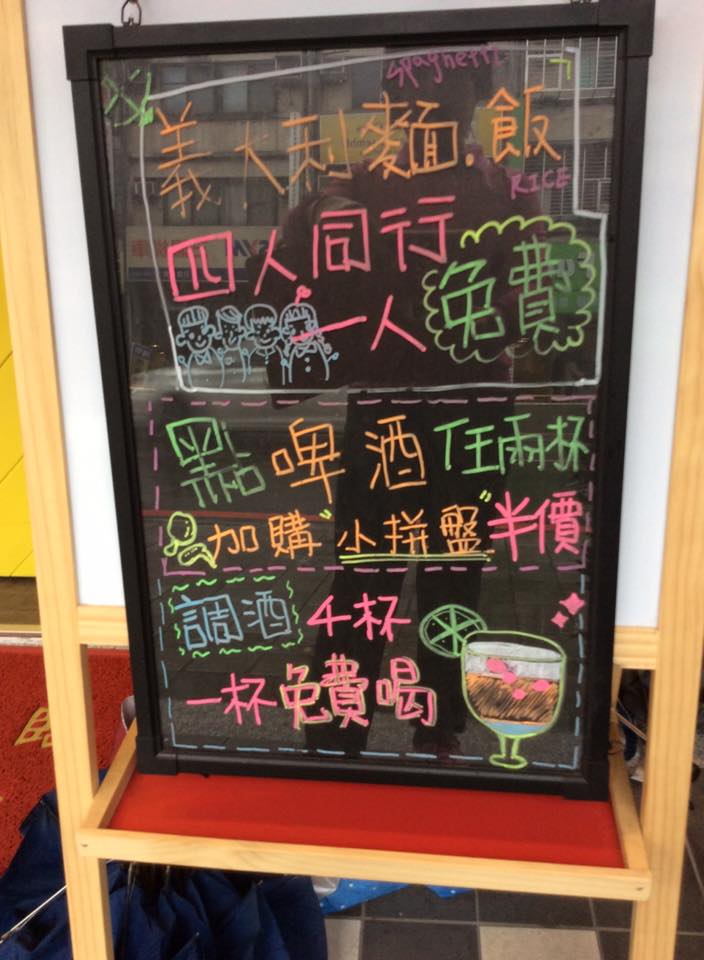 Spaghetti
義大利麵.飯
RICE
四人同行
一人免費
點啤酒任兩杯
加購"小拼盤"半價
調酒4杯
一杯免費喝